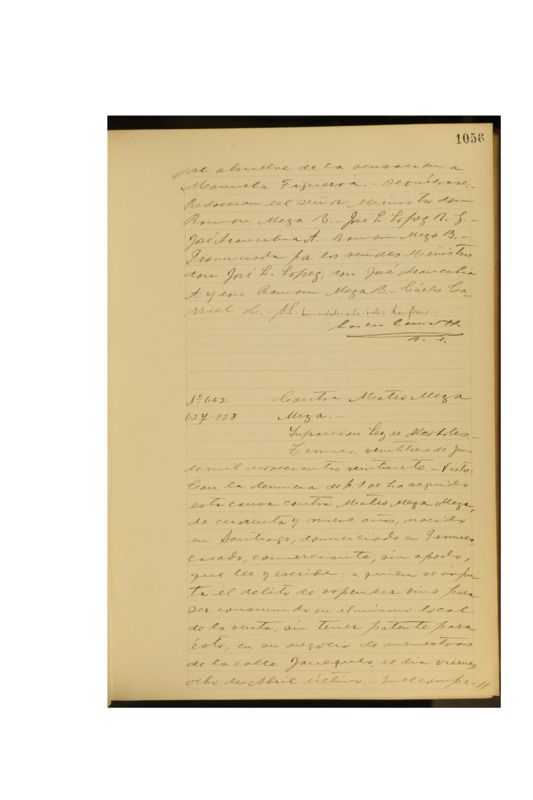 1056
se absuelve de la acusación a
Manuela Figueroa.- Devuélvase.
Redaccion del señor Ministro don
Ramon Meza B.- José L. Lopez R. G.-
José Arancibia A. Ramon Meza B.-
Pronunciada por los señores Ministros
don José L. Lopez, don José Arancibia
A. y don Ramon Meza B.- Carlos Ca-
conforme.-
Nº 662 Contra Mateo Meza
627-928 Meza.-
Infraccion Ley de Alcoholes.-
Temuco, veintitres de
de mil novecientos veintisiete.- Visto:
Con la denuncia de f. 1 se ha seguido
esta causa contra Mateo Meza Meza,
de cincuenta y nueve años, nacido
en Santiago, domiciliado en Temuco,
casado, comerciante, sin apodo,
que lee y escribe, a quien se impu-
ta el delito de expender vino para
ser consumido en el mismo local
de la venta, sin tener patente para
ésto, en su negocio de menestras
de la calle Janequeo, el dia viernes
ocho de Abril último.- En el compa-